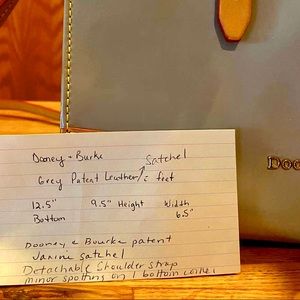 Dooney + Burke
Satchel
Grey Patent Leather / c feet
12.5" 9.5" Height Width
Bottom 6.5"
Dooney & Bourke patent
Janine satchel
Detachable Shoulder strap
minor spotting on 1 bottom corner
Doo